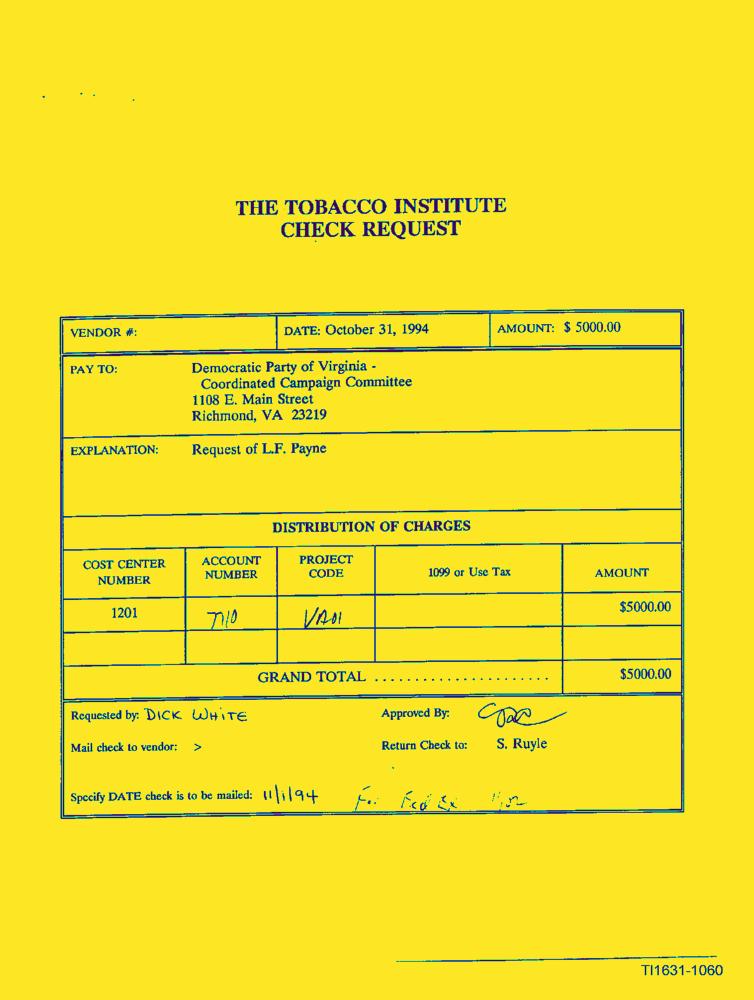 THE TOBACCO INSTITUTE
CHECK REQUEST
VENDOR #: DATE: October 31, 1994 AMOUNT: $ 5000.00
PAY TO: Democratic Party of Virginia -
Coordinated Campaign Committee
1108 E. Main Street
Richmond, VA 23219
EXPLANATION: Request of L.F. Payne
DISTRIBUTION OF CHARGES
COST CENTER NUMBER ACCOUNT NUMBER PROJECT CODE 1099 or Use Tax AMOUNT
1201 7710 VA01 $5000.00
GRAND TOTAL ...................... $5000.00
Requested by: DICK WHITE Approved By:
Mail check to vendor: > Return Check to: S. Ruyle
Specify DATE check is to be mailed: 11/1/94 For Fed Ex
TI1631-1060